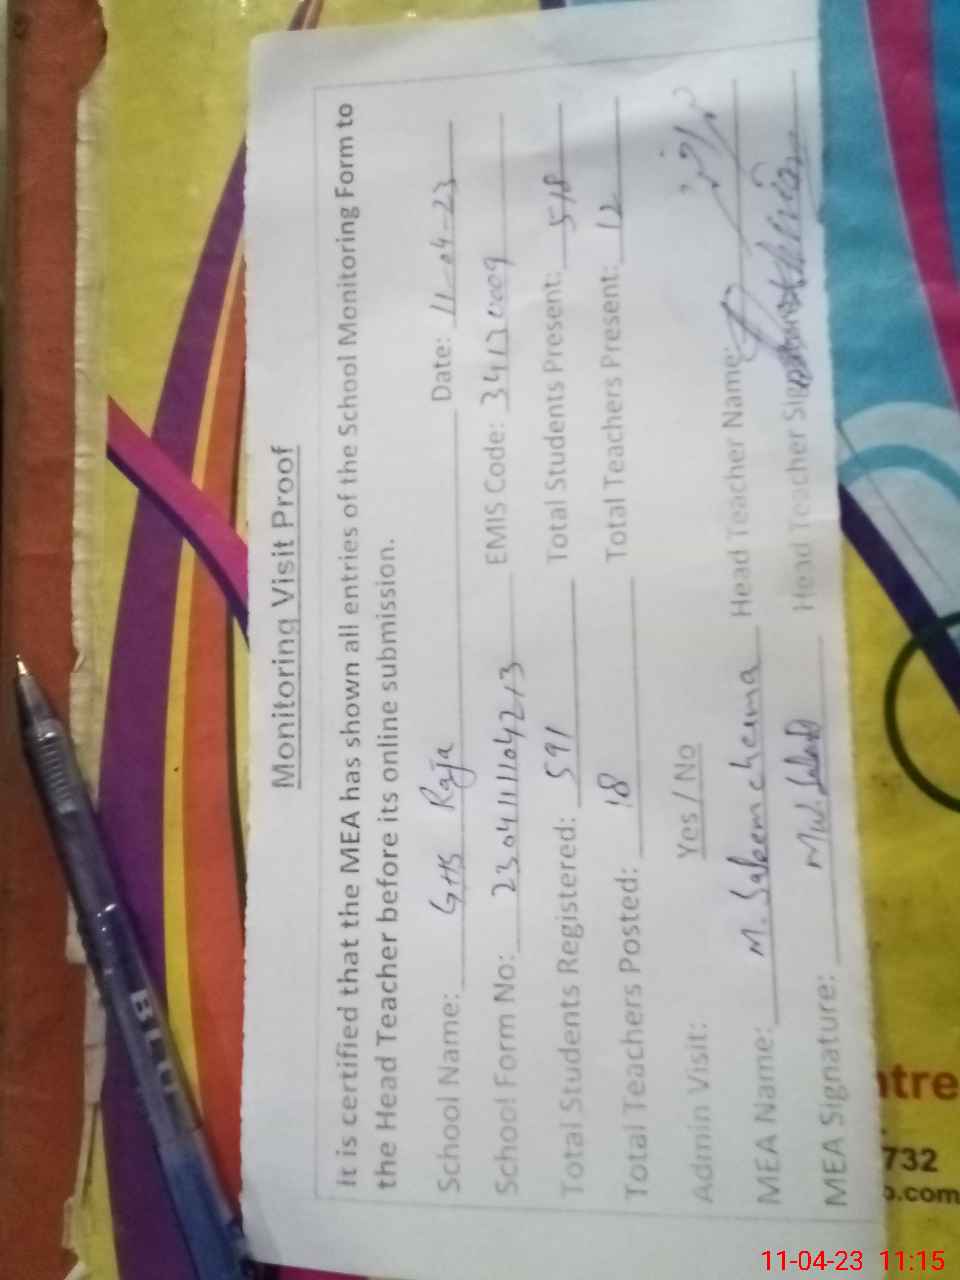 Monitoring Visit Proof
It is certified that the MEA has shown all entries of the School Monitoring Form to
the Head Teacher before its online submission.
School Name: GHS Raja Date: 11-04-23
School Form No: 2304111104213 EMIS Code: 34130009
Total Students Registered: 591 Total Students Present: 518
Total Teachers Posted: 18 Total Teachers Present: 12
Admin Visit: Yes / No
MEA Name: M. Saleem cheema Head Teacher Name:
MEA Signature: Head Teacher
BLU
ntre
732
o.com
11-04-23 11:15